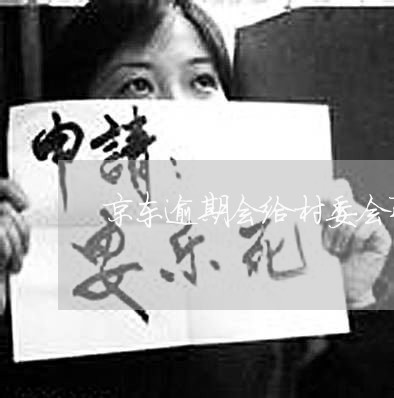 申請：
京东逾期会给村委会
安乐死